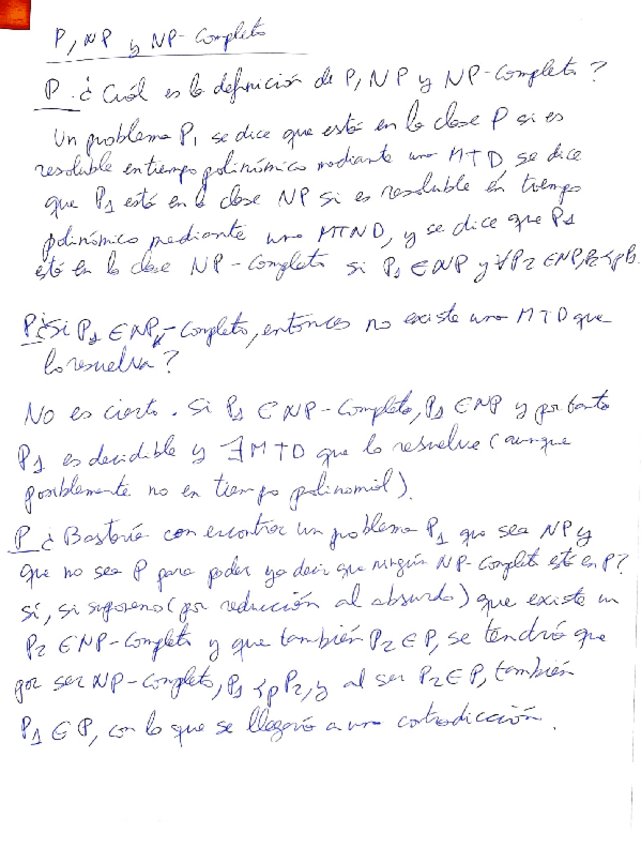 P, NP y NP-Completo
P. ¿Cuál es la definición de P, NP y NP-Completo?
Un problema P₁ se dice que está en la clase P si es
resoluble en tiempo polinómico mediante una MTD, se dice
que P₁ está en la clase NP si es resoluble en tiempo
polinómico mediante una MTND, y se dice que P₁
está en la clase NP-Completo si P₁ ∈ NP y ∀P₂ ∈ NP, P₂ <p P₁.
P ¿Si P₁ ∈ NP-Completo, entonces no existe una MTD que
lo resuelva?
No es cierto. Si P₁ ∈ NP-Completo, P₁ ∈ NP y por tanto
P₁ es decidible y ∃ MTD que lo resuelve (aunque
posiblemente no en tiempo polinomial).
P ¿Bastaría con encontrar un problema P₁ que sea NP y
que no sea P para poder ya decir que ningún NP-Completo está en P?
Sí, si suponemo (por reducción al absurdo) que existe un
P₂ ∈ NP-Completo y que también P₂ ∈ P, se tendrá que
por ser NP-Completo, P₁ <p P₂, y al ser P₂ ∈ P, también
P₁ ∈ P, con lo que se llegaría a una contradicción.